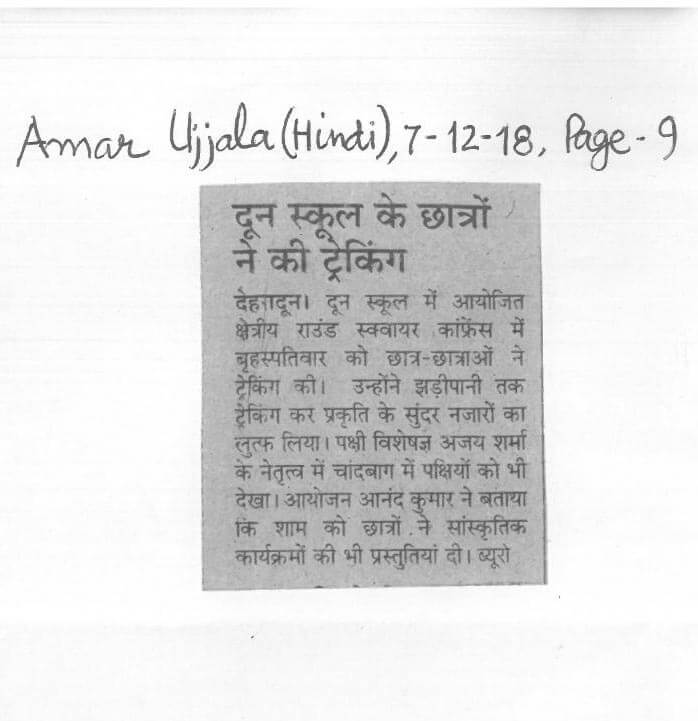 Amar Ujjala (Hindi), 7-12-18, Page - 9
दून स्कूल के छात्रों
ने की ट्रेकिंग
देहरादून। दून स्कूल में आयोजित
क्षेत्रीय राउंड स्क्वायर कांफ्रेंस में
बृहस्पतिवार को छात्र-छात्राओं ने
ट्रेकिंग की। उन्होंने झड़ीपानी तक
ट्रेकिंग कर प्रकृति के सुंदर नजारों का
लुत्फ लिया। पक्षी विशेषज्ञ अजय शर्मा
के नेतृत्व में चांदबाग में पक्षियों को भी
देखा। आयोजन आनंद कुमार ने बताया
कि शाम को छात्रों ने सांस्कृतिक
कार्यक्रमों की भी प्रस्तुतियां दी। ब्यूरो